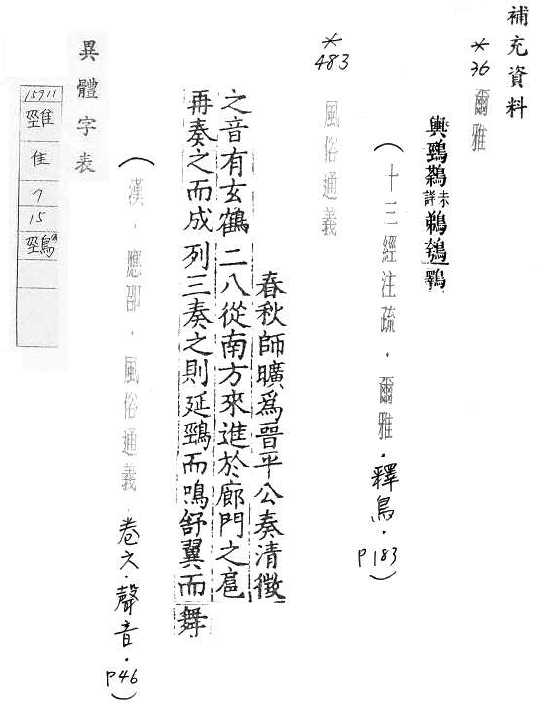 補充資料
*36 爾雅
輿鵛鷋未詳鵜鴮鸅
（十三經注疏．爾雅．釋鳥．P183）
*483 風俗通義
春秋師曠為晉平公奏清徵
之音有玄鶴二八從南方來進於廊門之扈
再奏之而成列三奏之則延鵛而鳴舒翼而舞
（漢．應邵．風俗通義．卷六．聲音．P46）
異體字表
15911
隹
7
15
鵛